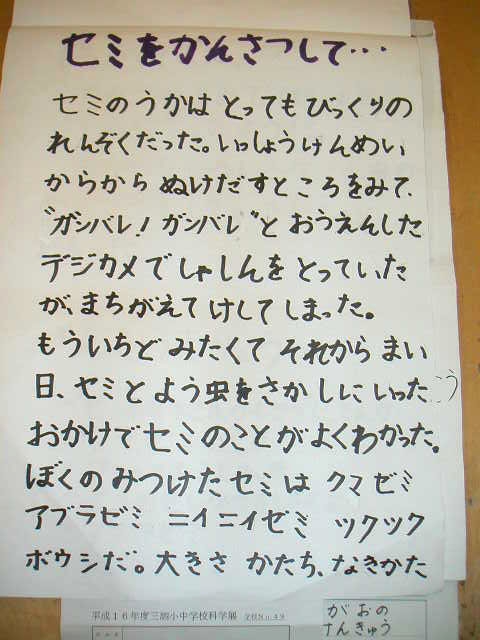 セミをかんさつして・・・
セミのうかは とってもびっくりの
れんぞくだった。いっしょうけんめい
からから ぬけだすところをみて、
"ガンバレ！ガンバレ"と おうえんした
デジカメで しゃしんを とっていた
が、まちがえて けしてしまった。
もういちど みたくて それから まい
日、セミとよう虫をさがしにいった こう
おかげでセミのことがよくわかった。
ぼくの みつけた セミは クマゼミ
アブラゼミ ニイニイゼミ ツクツク
ボウシだ。大きさ かたち、なきかた
平成16年度三
小中学校科学展
がおの
けんきゅう